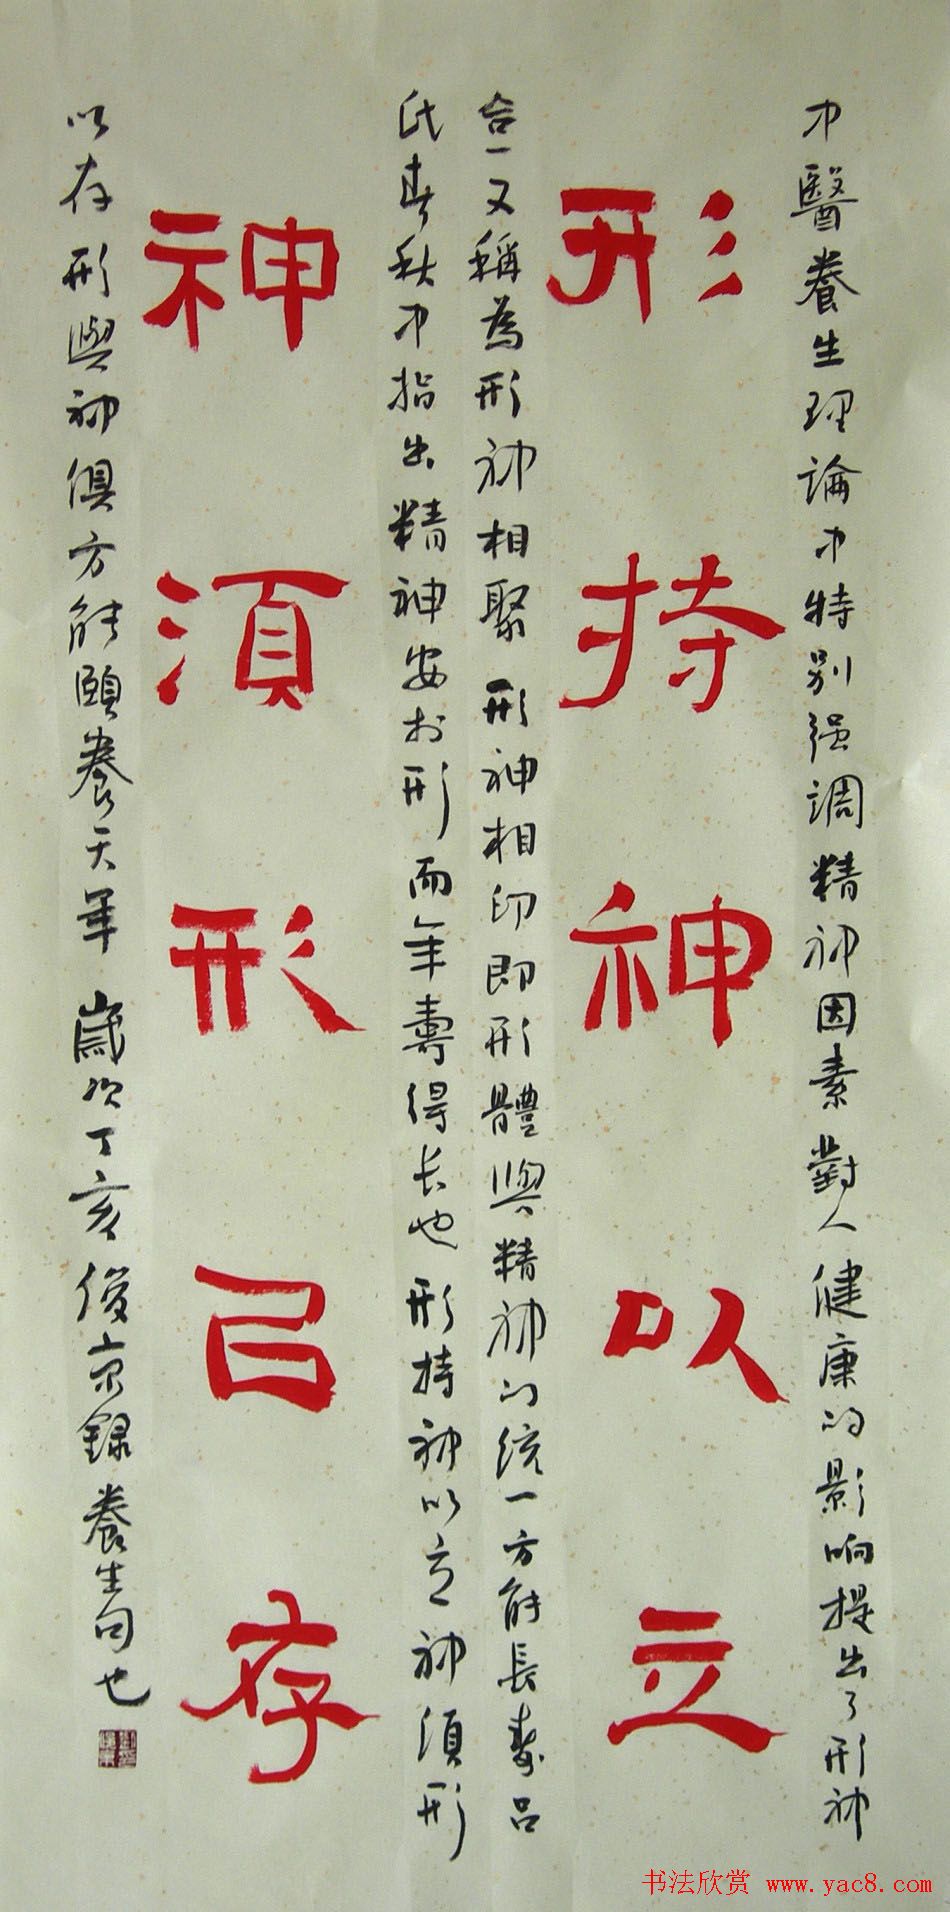 中醫養生理論中特别强調精神因素對人健康的影响提出了形神
形持神以立
合一又稱為形神相聚形神相印即形體與精神的统一方能長壽吕
氏春秋中指出精神安於形而年壽得长也形持神以立神須形
神須形已存
以存形與神俱方能頤養天年歲次丁亥俊京錄養生句也
书法欣赏 www.yac8.com